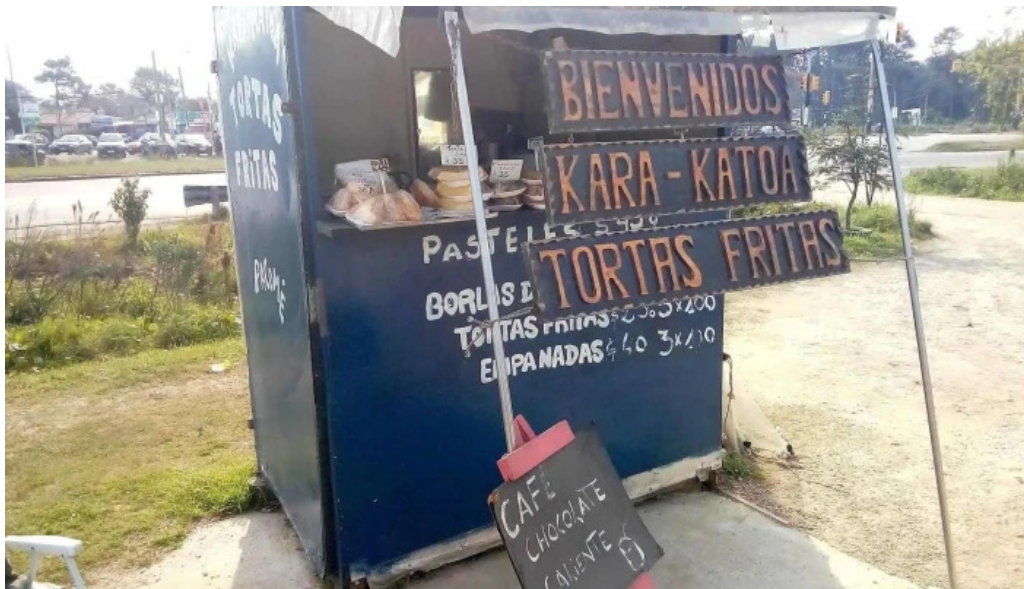 TORTAS
FRITAS
BIENVENIDOS
KARA-KATOA
TORTAS FRITAS
PASTELES
BORLAS D
TORTAS FRITAS
EMPANADAS $40 3x100
CAFE
CHOCOLATE
CALIENTE